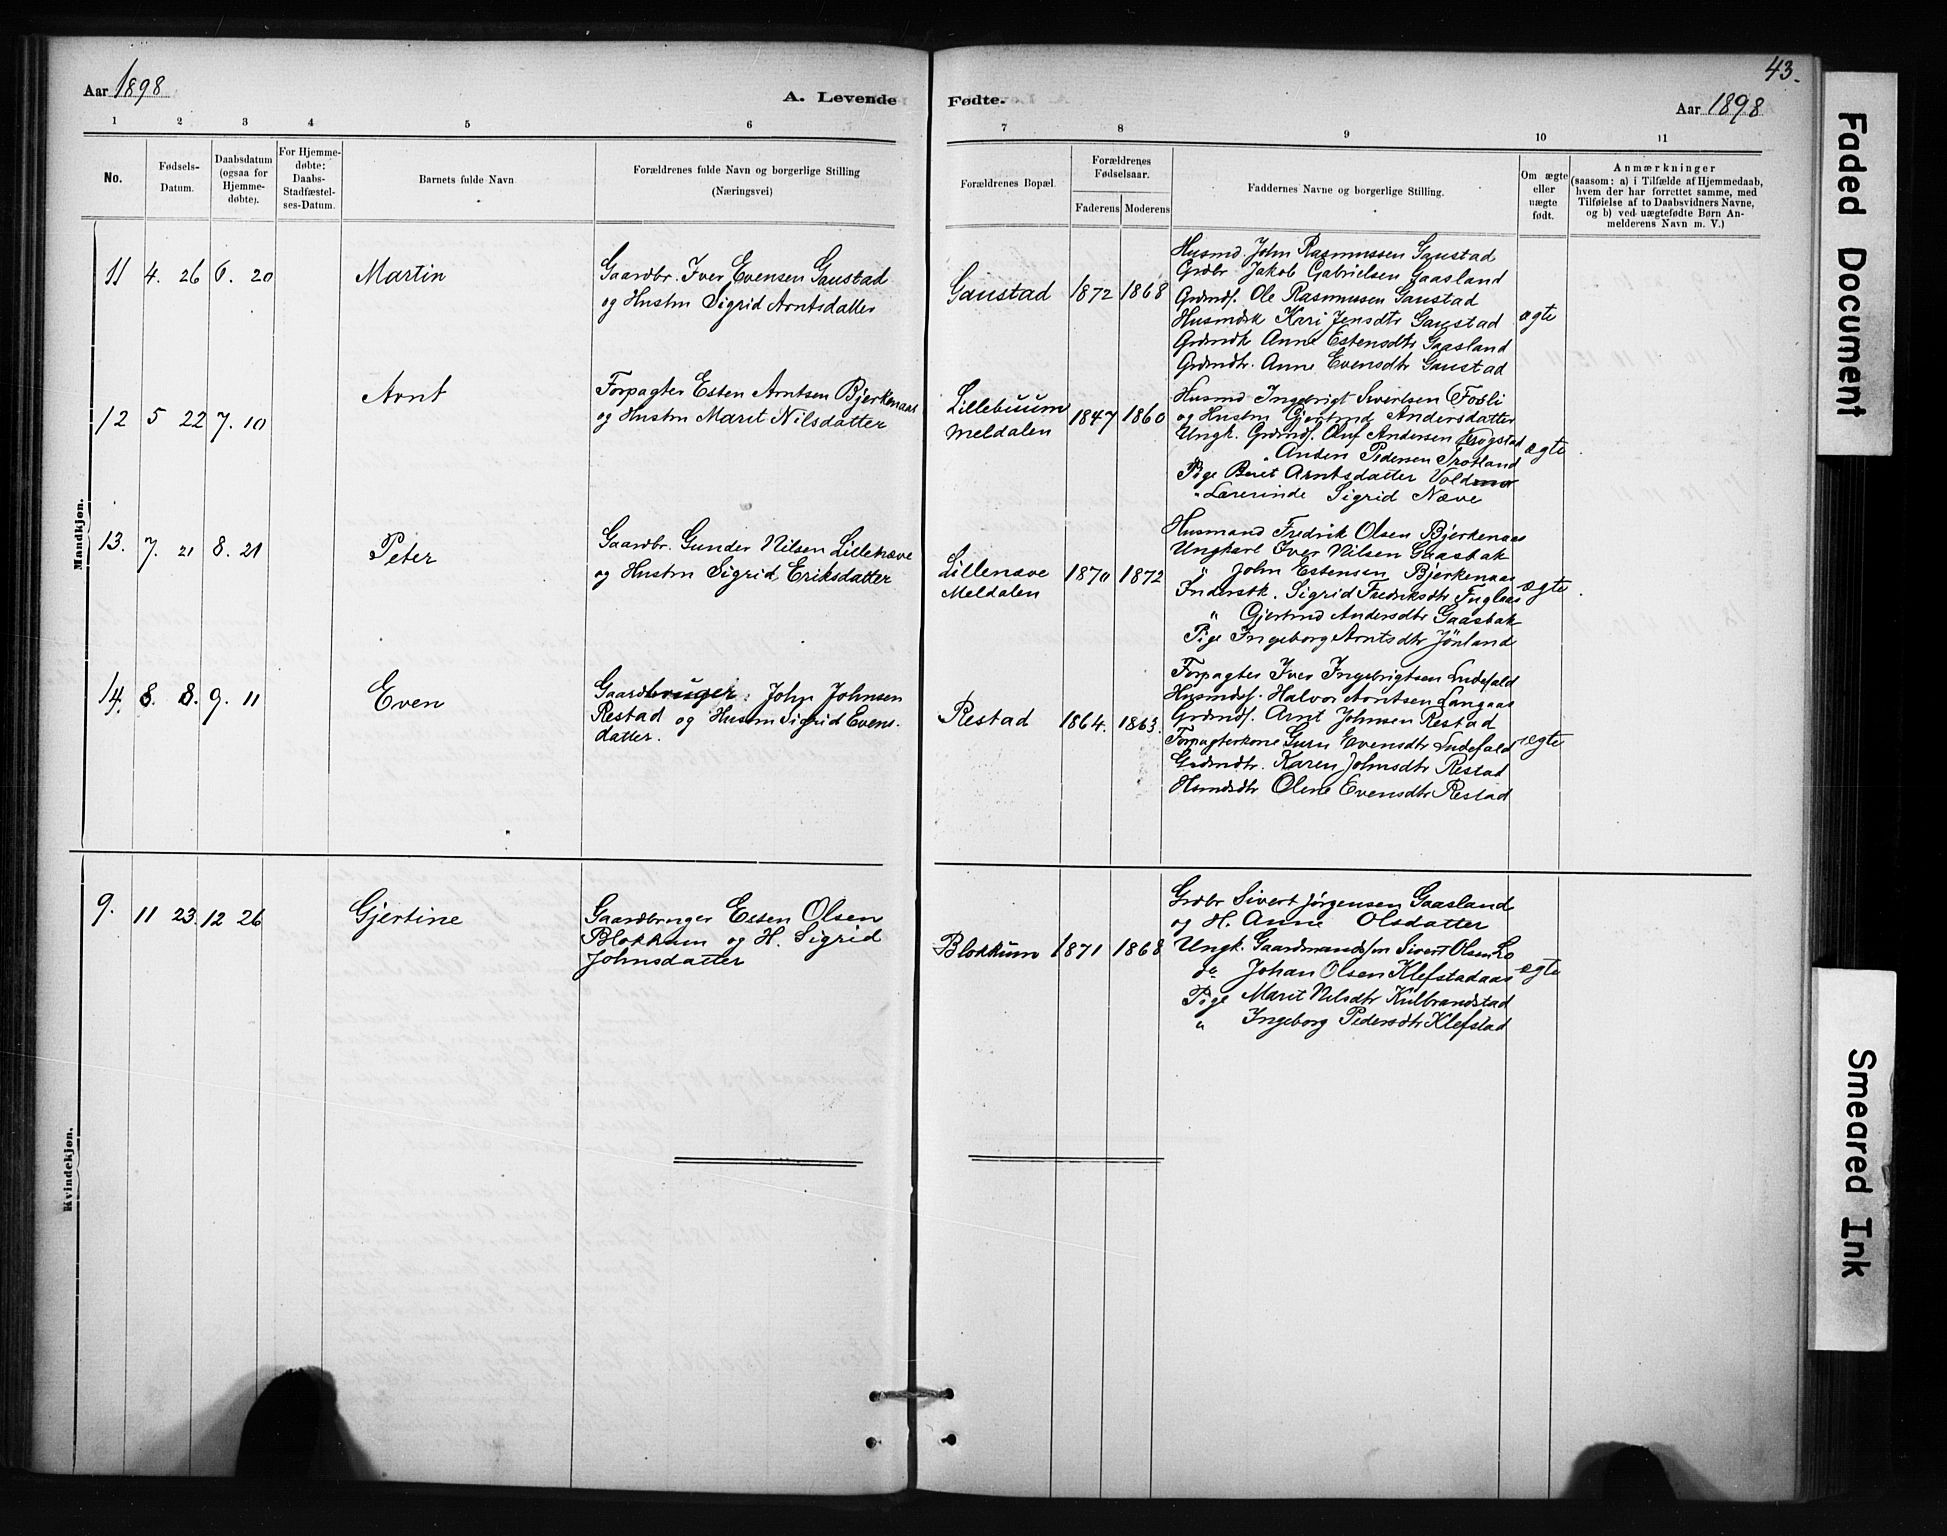 43.
Aar 1898
A. Levende Fødte.
Aar 1898
1 2 3 4 5 6 7 8 9 10 11
No.
Fødsels-
Datum.
Daabsdatum
(ogsaa for
Hjemme-
døbte).
For Hjemme-
døbte:
Daabs-
Stadfæstel-
ses-Datum.
Barnets fulde Navn
Forældrenes fulde Navn og borgerlige Stilling
(Næringsvei)
Forældrenes Bopæl.
Forældrenes
Fødselsaar.
Faderens Moderens
Faddernes Navne og borgerlige Stilling.
Om ægte
eller
uægte
født.
Anmærkninger
(saasom: a) i Tilfælde af Hjemmedaab,
hvem der har forrettet samme, med
Tilføielse af to Daabsvidners Navne,
og b) ved uægtefødte Børn An-
melderens Navn m. V.)
Mandkjøn.
11 4. 26 6. 20
Martin
Gaardbr. Iver Evensen Gaustad
og Hustru Sigrid Arntsdatter
Gaustad 1872 1868
Husmd John Rasmussen Gaustad
Grdbr Jakob Gabrielsen Gaasland
Grdmds. Ole Rasmussen Gaustad
Husmdsk Kari Jensdtr Gaustad
Grdmdk Anne Estensdtr Gaasland
Grdmdtr. Anne Evensdtr Gaustad
ægte
12 5 22 7. 10
Arnt
Forpagter Esten Arntsen Bjerkenaas
og Hustru Marit Nilsdatter
Lillebuum
Meldalen
1847 1860
Husmd Ingebrigt Sivertsen Fosli
og Hustru Gjertrud Andersdatter
Ungk. Grdmds. Oluf Andersen Krogstad
" Anders Pedersen Trotland
Pige Beret Arntsdatter Vold
" Lærerinde Sigrid Næve
ægte
13. 7. 21 8. 21
Peter
Gaardbr. Gunder Nilsen Lillenæve
og Hustru Sigrid Eriksdatter
Lillenæve
Meldalen
1870 1872
Husmand Fredrik Olsen Bjerkenaas
Ungkarl Iver Nilsen Gaasbak
" John Estensen Bjerkenaas
Inderstk. Sigrid Fredriksdtr Fuglaas
" Gjertrud Andersdtr Gaasbak
Pige Ingeborg Arntsdtr Jønland
ægte
14. 8. 8. 9. 11
Even
Gaardbruger John Johnsen
Restad og Hustru Sigrid Evens-
datter.
Restad 1864. 1863.
Forpagter Iver Ingebrigtsen Indefald
Husmds. Halvor Arntsen Langaas
Grdmds. Arnt Johnsen Restad
Forpagterkone Guru Evensdtr Indefald
Grdmdtr. Karen Johnsdtr Restad
Hsmdsdtr Oline Evensdtr Restad
ægte
Kvindekjøn.
9. 11 23. 12 26
Gjertine
Gaardbruger Esten Olsen
Blokkum og H. Sigrid
Johnsdatter
Blokkum 1871 1868
Grdbr Sivert Jørgensen Gaasland
og H. Anne Olsdatter
Ungk. Gaardmandsøn Sivert Olsen Lo
do Johan Olsen Klefstadaas
Pige Marit Nilsdtr Kulbrandstad
" Ingeborg Pedersdtr Klefstad
ægte
Faded Document
Smeared Ink